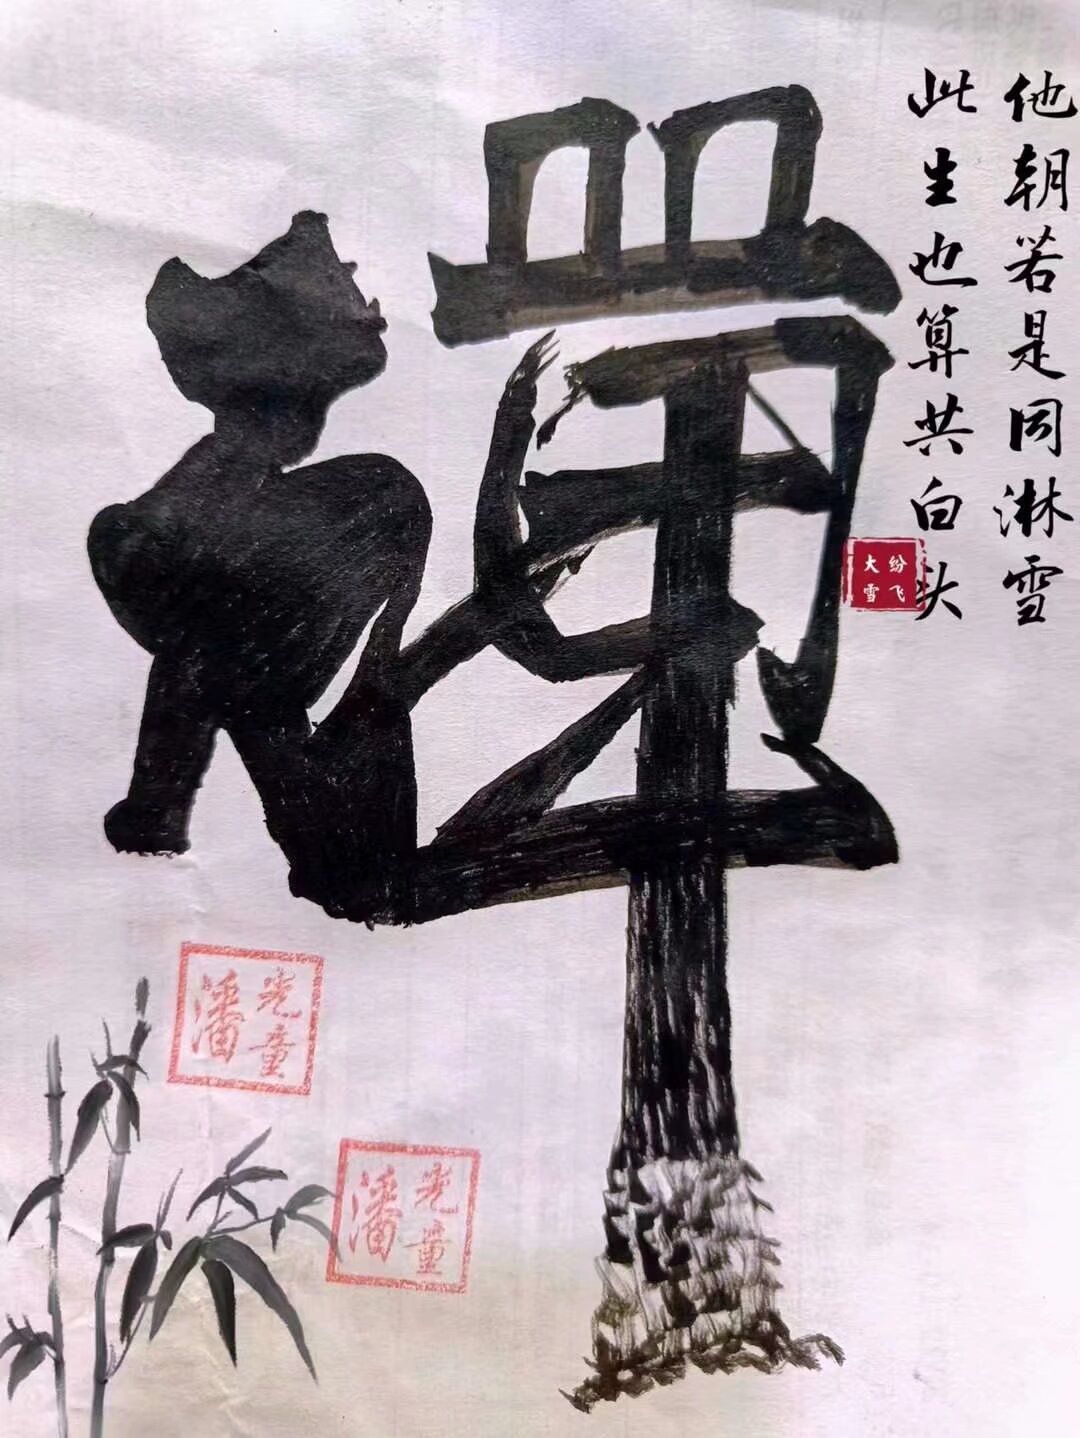 他朝若是同淋雪
此生也算共白头
纷飞
大雪
禪
光童
潘
光童
潘